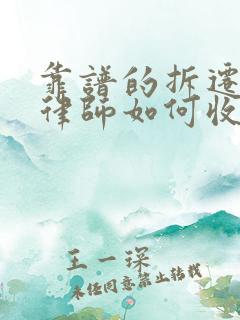 靠譜的拆遷
律師如何收
王一琛
未经同意禁止转载